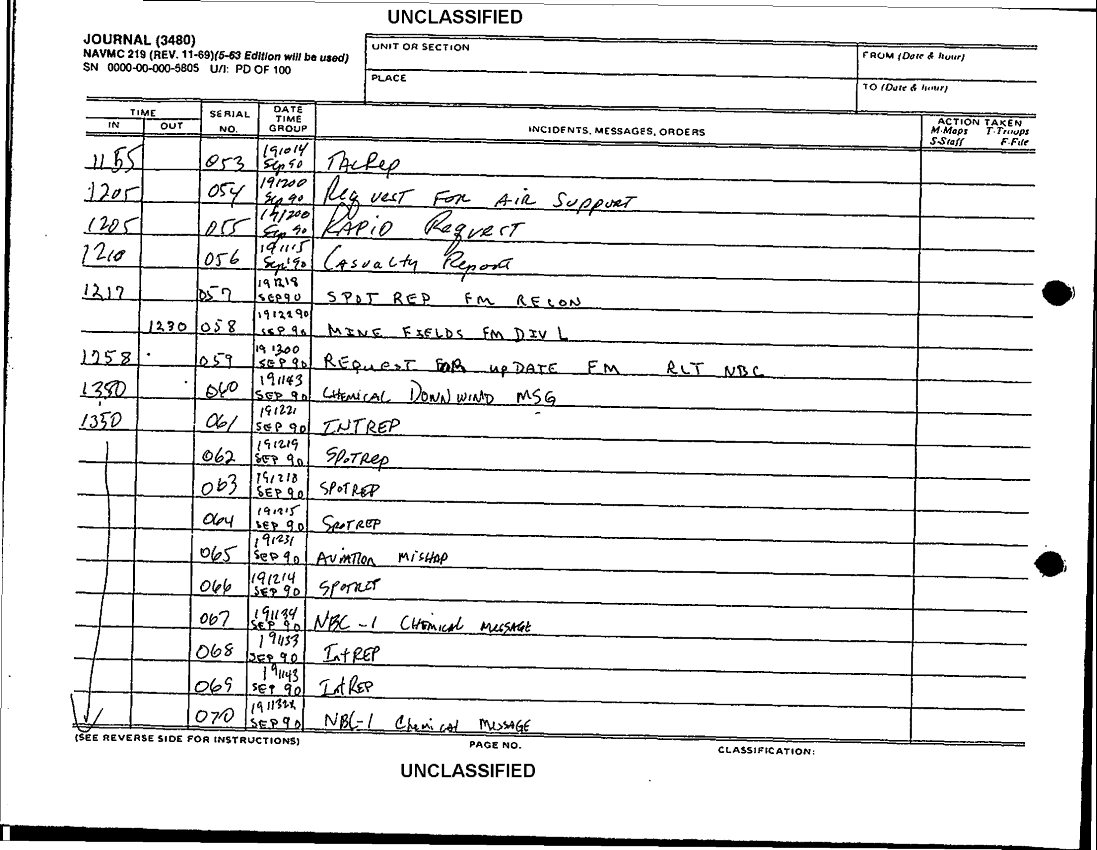 UNCLASSIFIED
JOURNAL (3480)
NAVMC 219 (REV. 11-69)(5-63 Edition will be used)
SN 0000-00-000-5805 U/I: PD OF 100
UNIT OR SECTION
PLACE
FROM (Date & hour)
TO (Date & hour)
TIME
IN OUT
SERIAL NO.
DATE TIME GROUP
INCIDENTS, MESSAGES, ORDERS
ACTION TAKEN
M-Maps T-Troops
S-Staff F-File
1155 053 191014 Sep 90 TACRep
1205 054 191200 Sep 90 Request FOR AIR Support
1205 055 191200 Sep 90 RAPID Request
1210 056 191115 Sep 90 Casualty Report
1217 057 191218 SEP 90 SPOT REP FM RECON
1230 058 SEP 90 MINE FIELDS FM DIV
1258 059 191200 SEP 90 REQuesT FOR upDATE FM RLT NBC
1350 060 191143 SEP 90 CHEMICAL DOWNWIND MSG
1350 061 191221 SEP 90 INTREP
062 191219 SEP 90 SPOTRep
063 191218 SEP 90 SPOTREP
064 191215 SEP 90 SPOTREP
065 191231 SEP 90 AVIATION MISHAP
066 191214 SEP 90
067 191134 SEP 90 NBC-1 CHEMICAL MESSAGE
068 191133 SEP 90 IntREP
069 191143 SEP 90 IntREP
070 SEP 90 NBC-1 Chemical MESSAGE
(SEE REVERSE SIDE FOR INSTRUCTIONS)
PAGE NO.
CLASSIFICATION:
UNCLASSIFIED